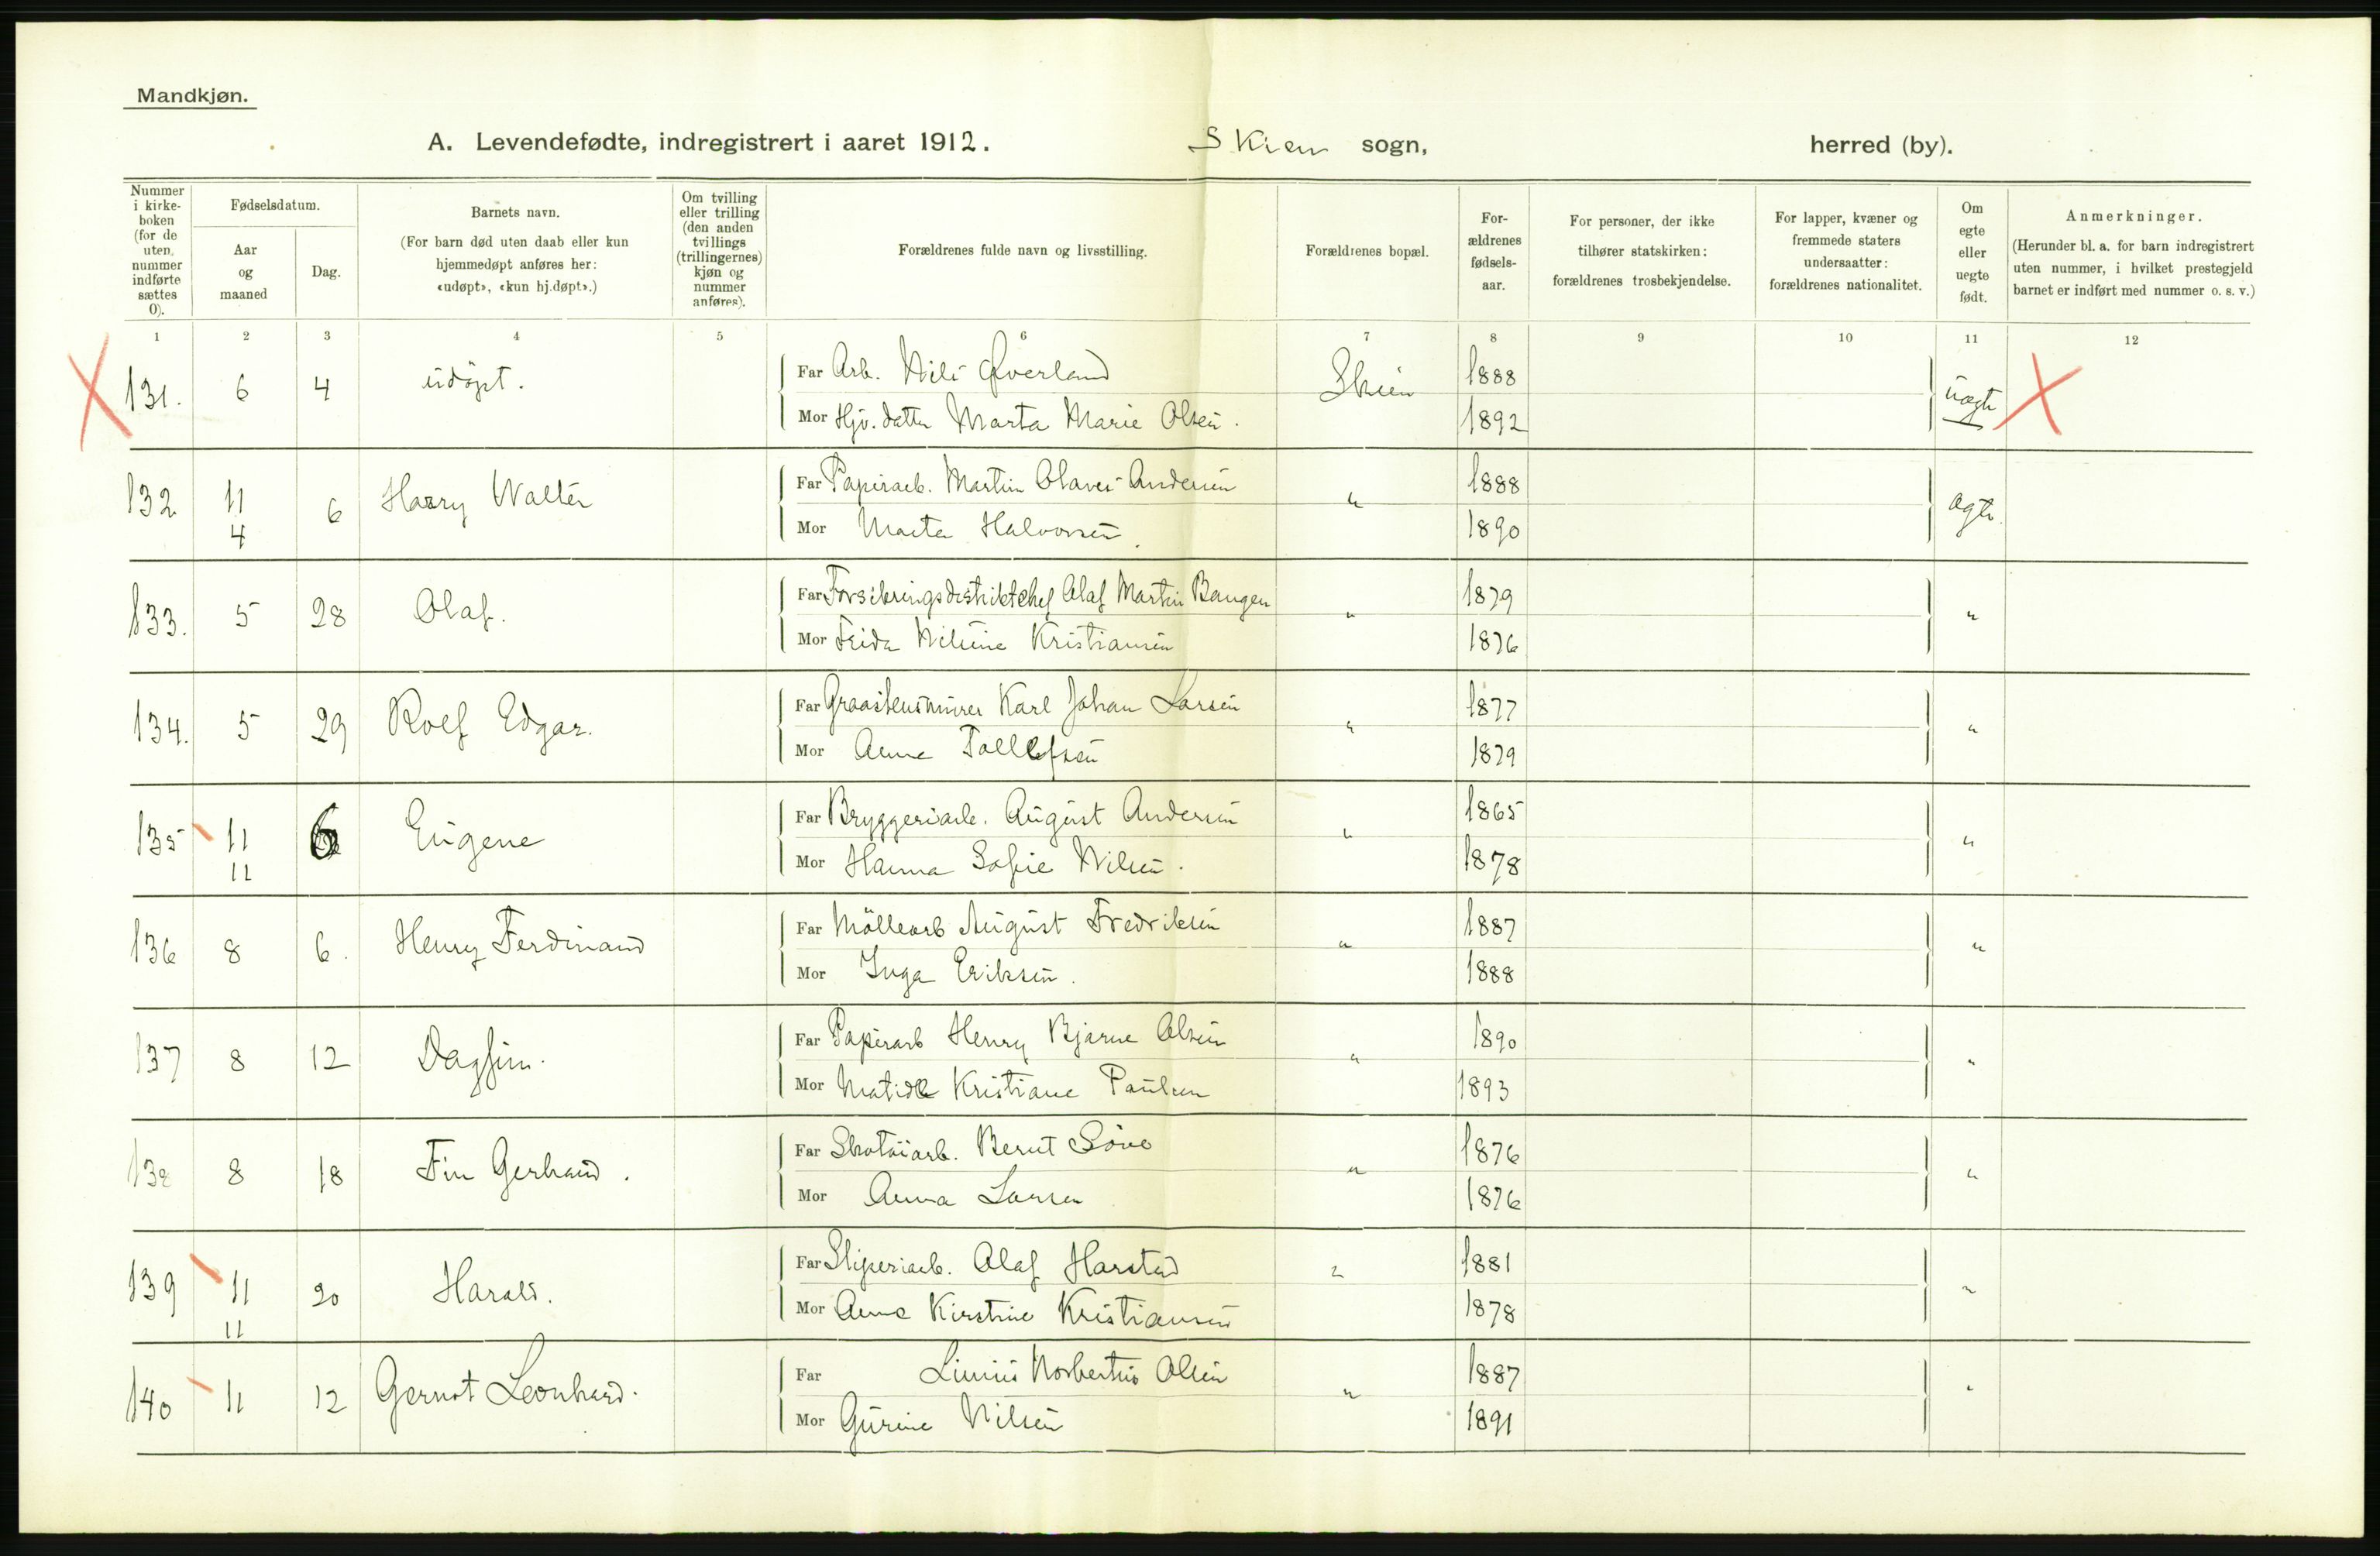 Mandkjøn.
A. Levendefødte, indregistrert i aaret 1912. Skien sogn, herred (by).
Nummer i kirke-boken (for de uten, nummer indførte sættes 0).
Fødselsdatum.
Aar og maaned
Dag.
Barnets navn.
(For barn død uten daab eller kun hjemmedøpt anføres her: «udøpt», «kun hj.døpt».)
Om tvilling eller trilling (den anden tvillings (trillingernes) kjøn og nummer anføres).
Forældrenes fulde navn og livsstilling.
Forældrenes bopæl.
For-ældrenes fødsels-aar.
For personer, der ikke tilhører statskirken: forældrenes trosbekjendelse.
For lapper, kvæner og fremmede staters undersaatter: forældrenes nationalitet.
Om egte eller uegte født.
Anmerkninger.
(Herunder bl. a. for barn indregistrert uten nummer, i hvilket prestegjeld barnet er indført med nummer o. s. v.)
1 2 3 4 5 6 7 8 9 10 11 12
131. 6 4 udöpt. Far Arb. Nils Øverland Skien 1888 uægte
Mor Hjv. datter Marta Marie Olsen. 1892
132 11 4 6 Harry Walter Far Papirarb. Martin Olaves Andersen " 1888 ægte.
Mor Marta Halvorsen. 1890
133. 5 28 Olaf. Far Forsikringsdistriktchef Olaf Martin Baugen " 1879 "
Mor Frida Nilsine Kristiansen 1876
134. 5 29 Rolf Edgar. Far Graastensmurer Karl Johan Larsen " 1877 "
Mor Anna Tollefsen 1879
135 11 11 6 Eugene Far Bryggeriarb. August Andersen " 1865 "
Mor Hanna Sofie Nilsen. 1878
136 8 6. Henry Ferdinand Far Möllearb August Fredriksen " 1887 "
Mor Inga Eriksen. 1888
137 8 12 Dagfin. Far Papirarb Henry Bjarne Olsen " 1890 "
Mor Matilde Kristiane Paulsen 1893
138 8 18 Fin Gerhard. Far Skotöiarb. Bernt Söve " 1876 "
Mor Anna Larsen 1876
139 11 11 20 Harald. Far Sliperiarb. Olaf Harstad " 1881 "
Mor Anna Kirstine Kristiansen 1878
140 11 12 Gernot Leonhard. Far Linius Norbertus Olsen " 1887 "
Mor Gurine Nilsen 1891